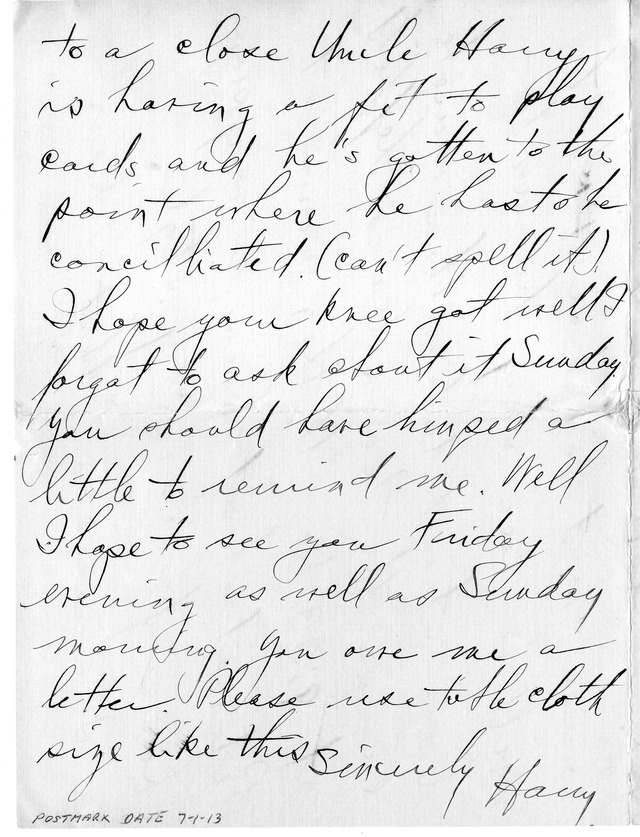 to a close Uncle Harry
is having a fit to play
cards and he's gotten to the
point where he has to be
concilliated. (can't spell it).
I hope your knee got well I
forgot to ask about it Sunday.
You should have himped a
little to remind me. Well
I hope to see you Friday
evening as well as Sunday
morning. You owe me a
letter. Please use the cloth
size like this
Sincerely Harry
POSTMARK DATE 7-1-13